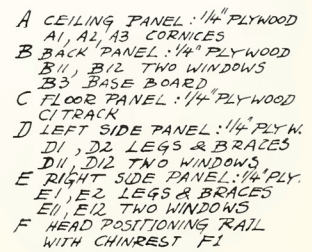 A CEILING PANEL: 1/4" PLYWOOD
A1, A2, A3 CORNICES
B BACK PANEL: 1/4" PLYWOOD
B11, B12 TWO WINDOWS
B3 BASE BOARD
C FLOOR PANEL: 1/4" PLYWOOD
C1 TRACK
D LEFT SIDE PANEL: 1/4" PLYW.
D1, D2 LEGS & BRACES
D11, D12 TWO WINDOWS
E RIGHT SIDE PANEL: 1/4" PLY.
E1, E2 LEGS & BRACES
E11, E12 TWO WINDOWS
F HEAD POSITIONING RAIL
WITH CHINREST F1